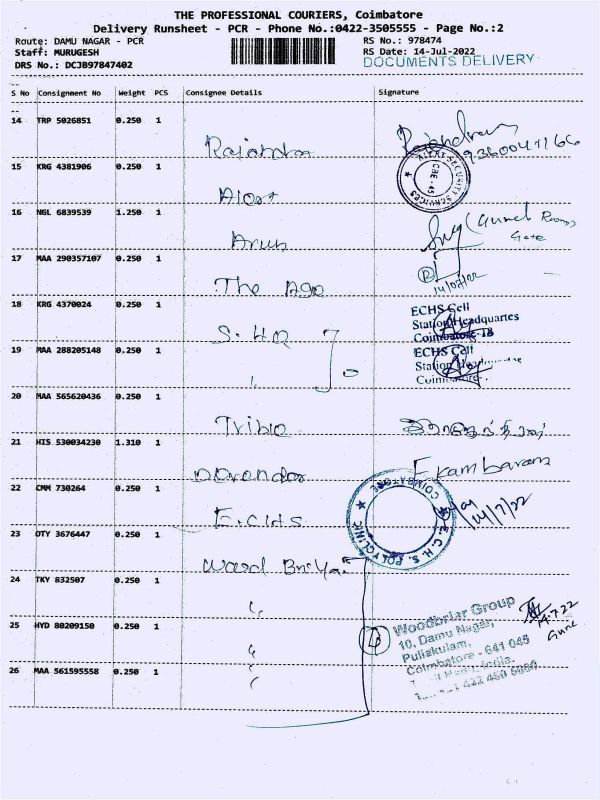 THE PROFESSIONAL COURIERS, Coimbatore
Delivery Runsheet - PCR - Phone No.:0422-3505555 - Page No.:2
Route: DAMU NAGAR - PCR
RS No.: 978474
Staff: MURUGESH
RS Date: 14-Jul-2022
DRS No.: DCJB97847402
DOCUMENTS DELIVERY
S No Consignment No Weight PCS Consignee Details Signature
14 TRP 5026851 0.250 1
Rajendra
Rajendran
15 KRG 4381906 0.250 1
Alert
ALERT SECURITY SERVICES
CBE - 45
16 NGL 6839539 1.250 1
Arun
Gate
17 MAA 290357107 0.250 1
The
14/07/22
18 KRG 4370024 0.250 1
S. HQ
ECHS Cell
Station Headquartes
Coimbatore-18
19 MAA 288205148 0.250 1
ECHS Cell
Station Headquartes
Coimbatore
20 MAA 565620436 0.250 1
21 HIS 530034230 1.310 1
Devendar
Ekambaram
22 CMM 730264 0.250 1
E.CHS
E.C.H.S. POLYCLINIC
COIMBATORE
14/7/22
23 OTY 3676447 0.250 1
24 TKY 832507 0.250 1
25 HYD 80209150 0.250 1
Woodbriar Group
10, Damu Nagar,
Puliakulam,
Coimbatore - 641 045
26 MAA 561595558 0.250 1